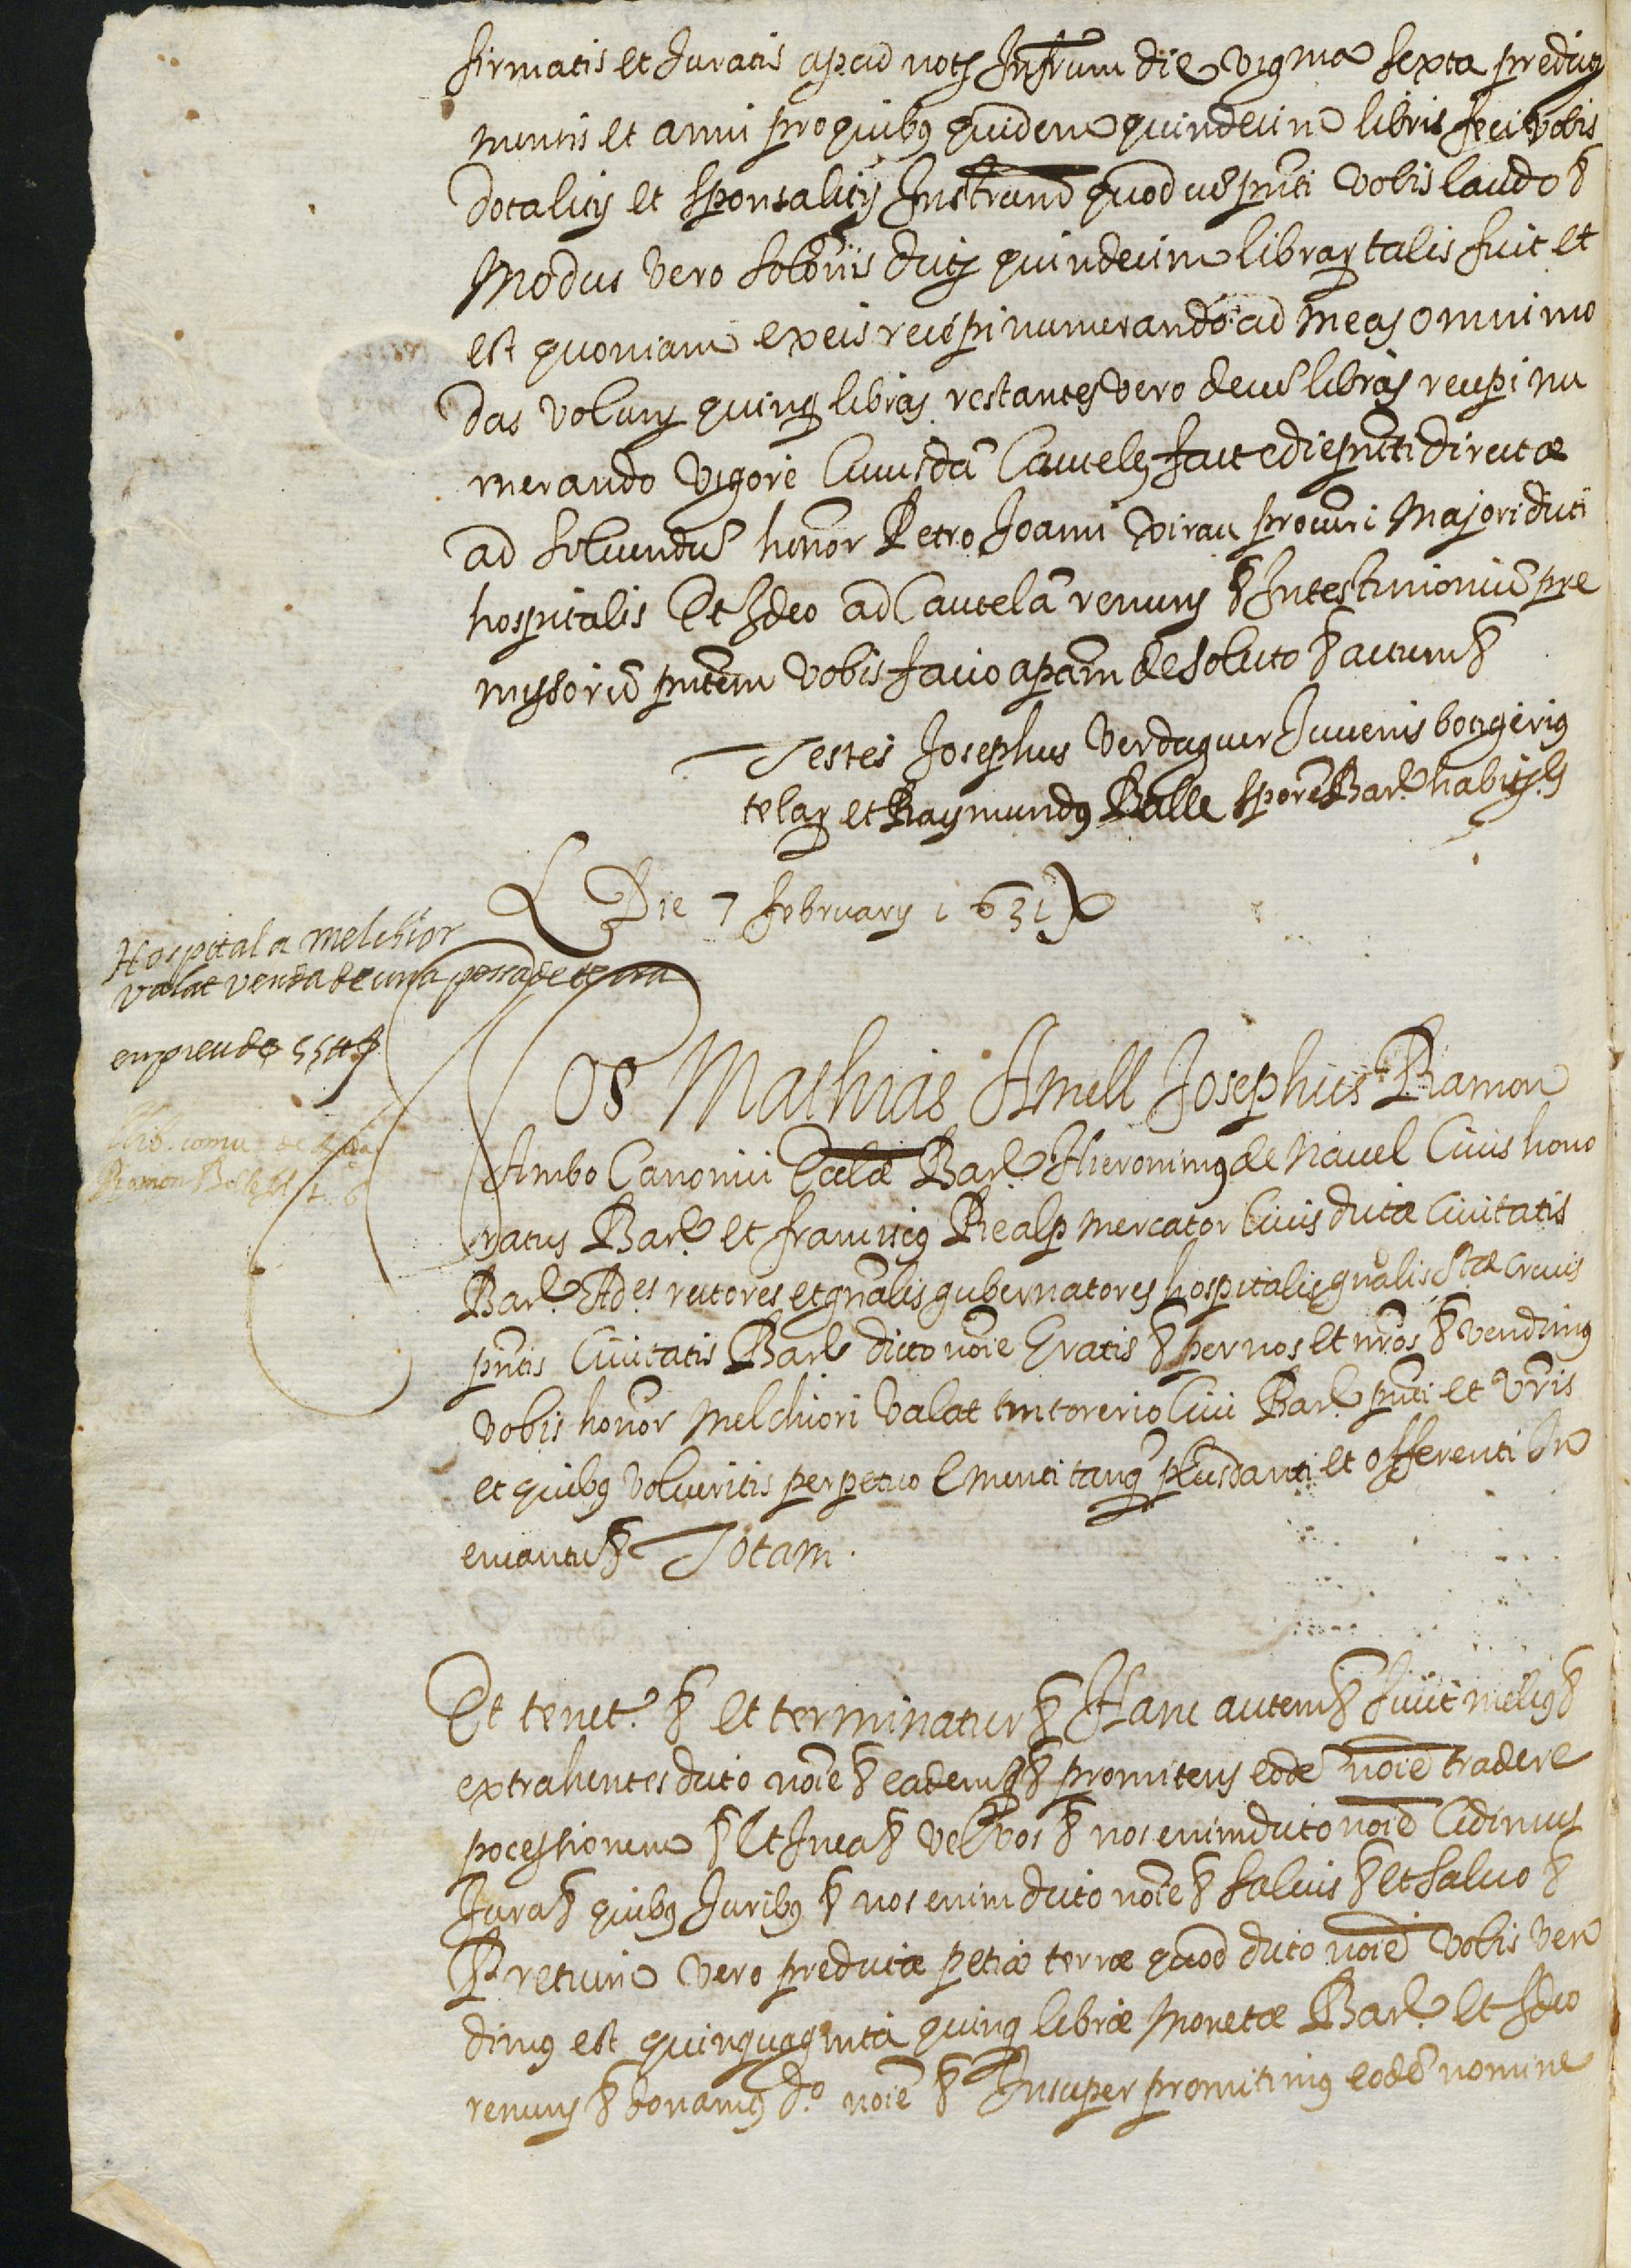 firmatis et Juratis apud nots Infrum die vigma sexta predictj
mensis et anni pro quibus quidem quindecim libris feci vobis
dotalitij et sponsalitij Instrum quod ut pnti vobis laudo &
Modus vero solonis dictj quindecim librar talis fuit et
est quoniam ex eis recepi numerando ad meas omnimo
das volunj quinq libras restantes vero decem libras recepi nu
merando vigore Cuiusda Cautele facte die pnti directæ
ad solvendu honor Petro Joanni virau procuri Majori dicti
hospitalis Et Ideo ad Cautela renunj & In testimonium pre
missoru pntem vobis facio apam de soluto & actum &
Testes Josephus Verdaguer Juvenis botigerius
telar et Raymundus Batlle Bar habitj
Die 7 february 1631
Hospital a Melchior
Valat venda de una pessa de terra
en preu de 55 ₶
Nos Mathias Amell Josephus Ramon
Ambo Canonici Eccliæ Bar Hieronimus de Navel Civis hono
ratus Bar et franciscus Realp Mercator Civis dictæ Civitatis
Bar Ad.es rectores et gnalis gubernatores hospitalis gnalis Stæ Crucis
pntis Civitatis Bar dicto noie Gratis & per nos et nros & vendimus
vobis honor Melchiori Valat tintorerio Civi Bar pnti et vris
et quibus volueritis perpetuo Ementi tanq plus danti et offerenti In
encantu & Totam.
Et tenet. & et terminatur & Hanc autem & sicut melius &
extrahentes dicto noie & eademq & promitens eode noie tradere
pocessionem & Et Inea & vel vos & nos enim dicto noie Cedimus
Jura & quibus Juribus & nos enim dicto noie & salvis & et salvo &
Pretium vero predictæ petiæ terræ quod dicto noie vobis ven
dimus est quinquaginta quinq libræ Monetæ Bar Et Ideo
renunj & donamus do. noie & Insuper promitimus eode nomine